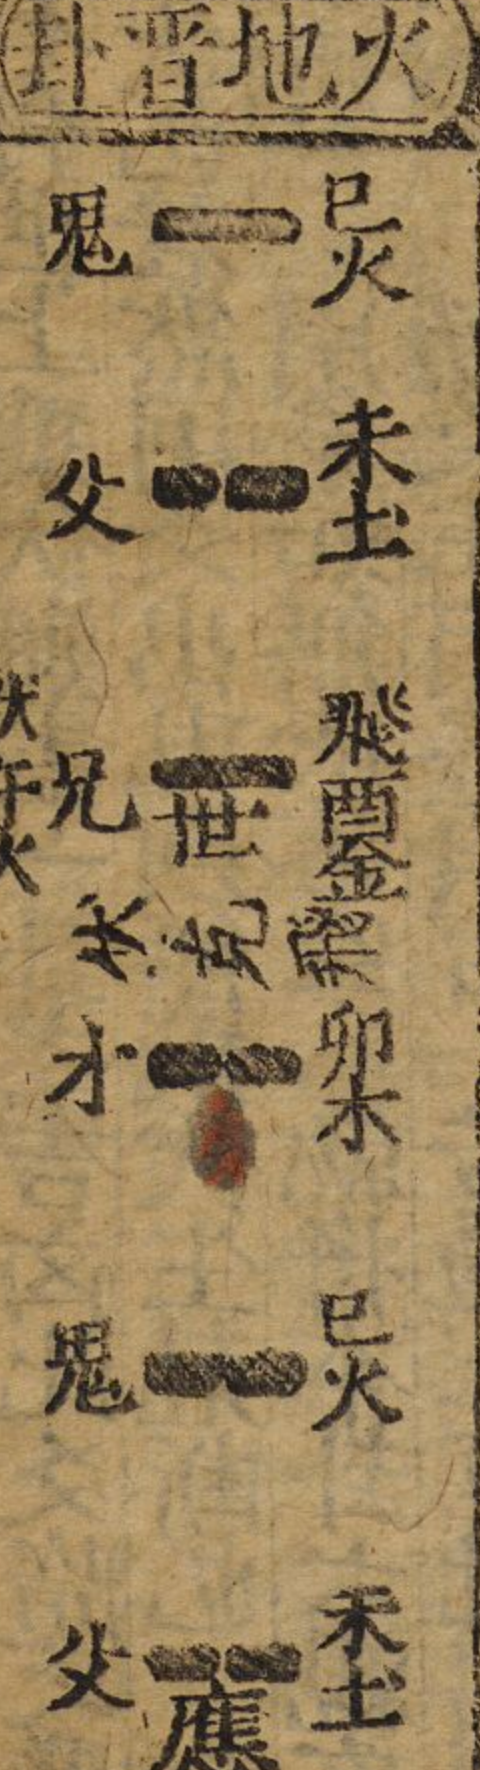 火地晋卦
巳火 鬼
未土 父
飛酉金 世 兄
伏午火
卯木 才
巳火 鬼
未土 應 父